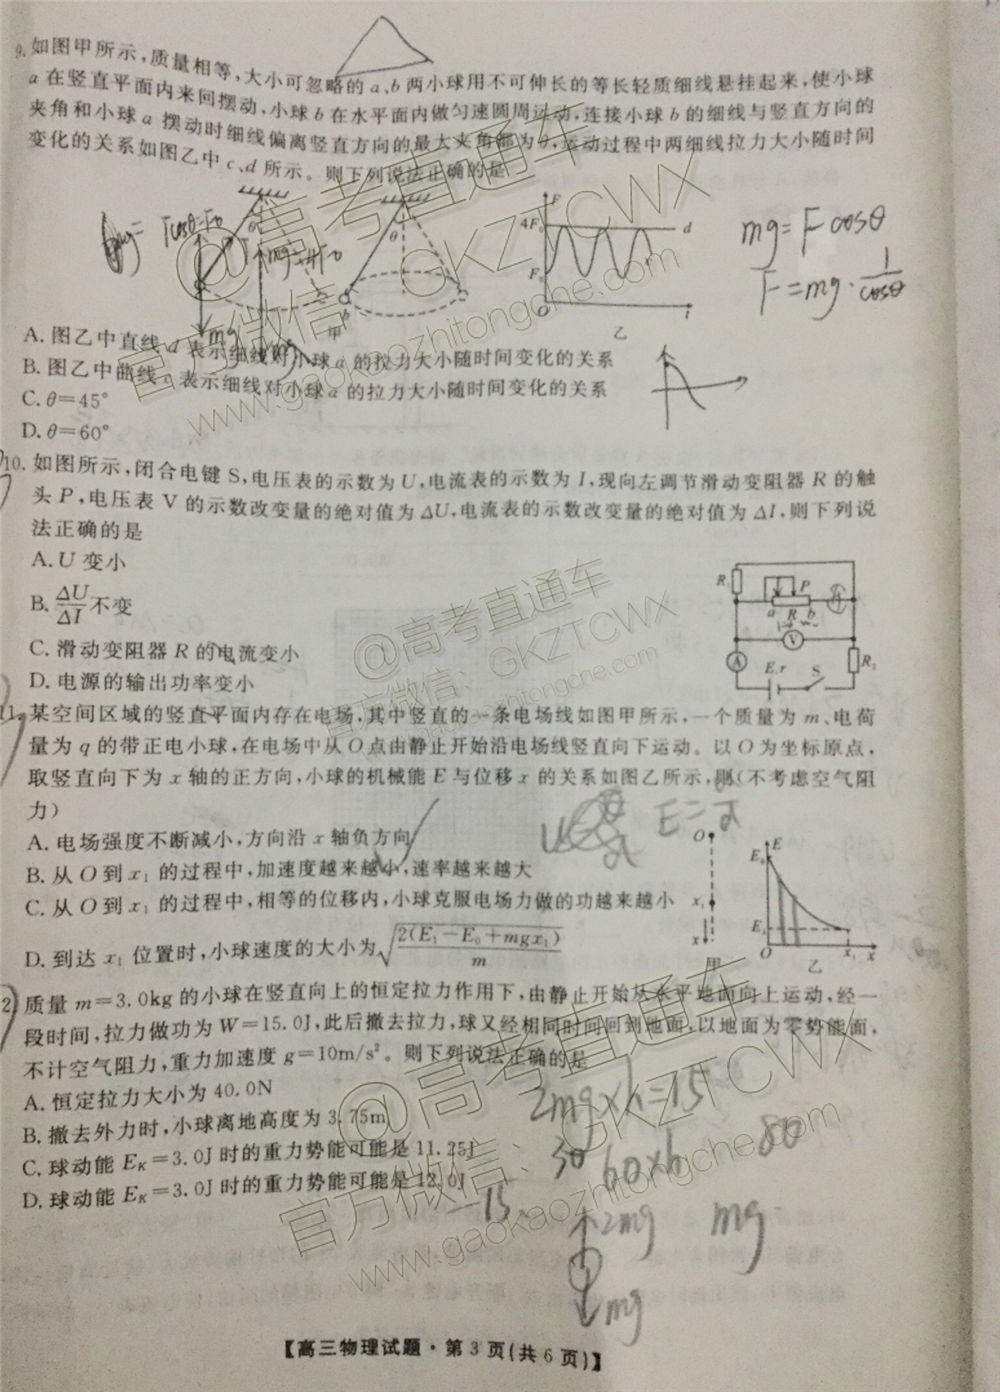 9. 如图甲所示,质量相等,大小可忽略的 a、b 两小球用不可伸长的等长轻质细线悬挂起来,使小球
a 在竖直平面内来回摆动,小球 b 在水平面内做匀速圆周运动,连接小球 b 的细线与竖直方向的
夹角和小球 a 摆动时细线偏离竖直方向的最大夹角都为 θ,运动过程中两细线拉力大小随时间
变化的关系如图乙中 c、d 所示。则下列说法正确的是
mg=Fcosθ
F=mg·1/cosθ
θ
θ
b
甲
F
4F₀
F₀
O
d
t
乙
A. 图乙中直线 d 表示细线对小球 a 的拉力大小随时间变化的关系
B. 图乙中曲线 c 表示细线对小球 a 的拉力大小随时间变化的关系
C. θ=45°
D. θ=60°
10. 如图所示,闭合电键 S,电压表的示数为 U,电流表的示数为 I,现向左调节滑动变阻器 R 的触
头 P,电压表 V 的示数改变量的绝对值为 ΔU,电流表的示数改变量的绝对值为 ΔI,则下列说
法正确的是
A. U 变小
B. ΔU/ΔI 不变
C. 滑动变阻器 R 的电流变小
D. 电源的输出功率变小
P
a R b
V
A
E,r
S
11. 某空间区域的竖直平面内存在电场,其中竖直的一条电场线如图甲所示,一个质量为 m、电荷
量为 q 的带正电小球,在电场中从 O 点由静止开始沿电场线竖直向下运动。以 O 为坐标原点,
取竖直向下为 x 轴的正方向,小球的机械能 E 与位移 x 的关系如图乙所示,则(不考虑空气阻
力)
A. 电场强度不断减小,方向沿 x 轴负方向
B. 从 O 到 x₁ 的过程中,加速度越来越小,速率越来越大
C. 从 O 到 x₁ 的过程中,相等的位移内,小球克服电场力做的功越来越小
D. 到达 x₁ 位置时,小球速度的大小为√(2(E₁−E₀+mgx₁)/m)
O
x₁
x
甲
E
E₀
E₁
O
x₁
x
乙
2. 质量 m=3.0kg 的小球在竖直向上的恒定拉力作用下,由静止开始从水平地面向上运动,经一
段时间,拉力做功为 W=15.0J,此后撤去拉力,球又经相同时间回到地面,以地面为零势能面,
不计空气阻力,重力加速度 g=10m/s²。则下列说法正确的是
A. 恒定拉力大小为 40.0N
B. 撤去外力时,小球离地高度为 3.75m
C. 球动能 Eₖ=3.0J 时的重力势能可能是 11.25J
D. 球动能 Eₖ=3.0J 时的重力势能可能是 12.0J
2mg×h=15
30
60×h
80
2mg
mg
mg
【高三物理试题·第 3 页(共 6 页)】
@高考直通车
官方微信:GKZTCWX
www.gaokaozhitongche.com
@高考直通车
官方微信:GKZTCWX
www.gaokaozhitongche.com
@高考直通车
官方微信:GKZTCWX
www.gaokaozhitongche.com